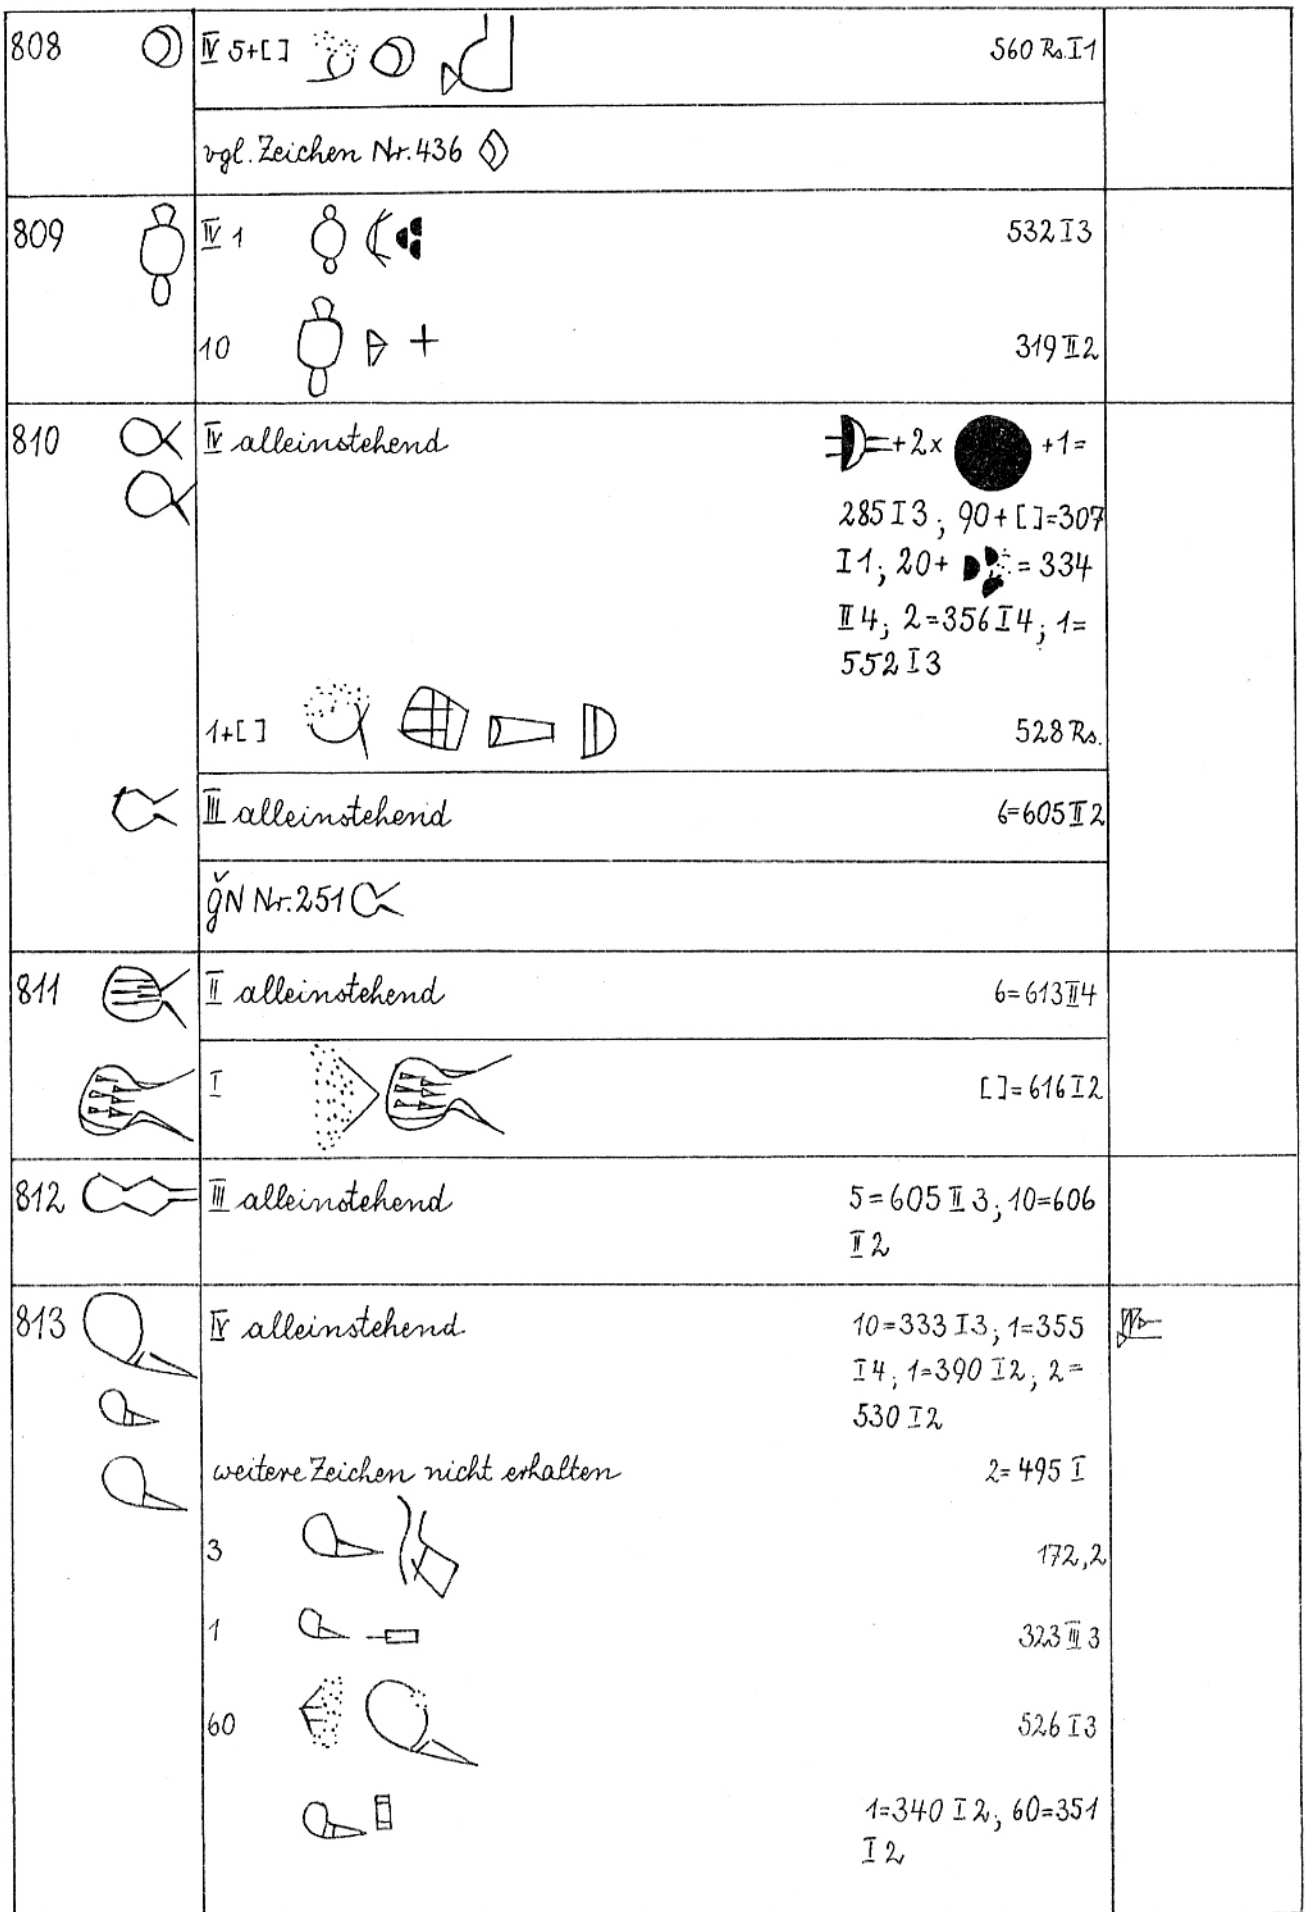 808 IV 5+[ ] 560 Rs. I 1
vgl. Zeichen Nr. 436
809 IV 1 532 I 3
10 319 II 2
810 IV alleinstehend +2x +1=
285 I 3; 90+[ ]=307
I 1; 20+ = 334
II 4; 2=356 I 4; 1=
552 I 3
1+[ ] 528 Rs.
III alleinstehend 6=605 II 2
ǧN Nr. 251
811 II alleinstehend 6=613 II 4
I [ ]=616 I 2
812 III alleinstehend 5=605 II 3; 10=606
II 2
813 IV alleinstehend 10=333 I 3; 1=355
I 4; 1=390 I 2; 2=
530 I 2
weitere Zeichen nicht erhalten 2=495 I
3 172,2
1 323 III 3
60 526 I 3
1=340 I 2; 60=351
I 2